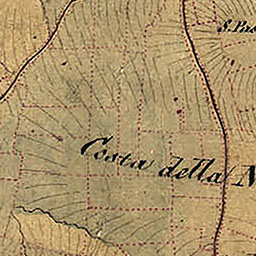 S. Pao
Costa della N